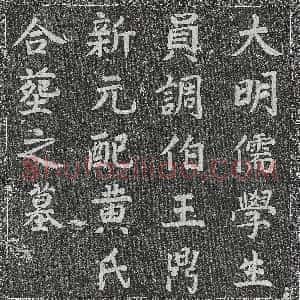 大明儒學生
員調伯王門
新元配黄氏
合塟之墓